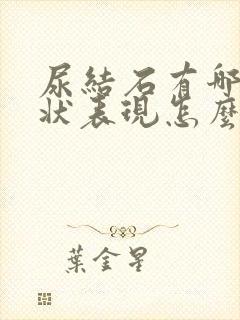 尿結石有哪
狀表現怎麼
葉金星